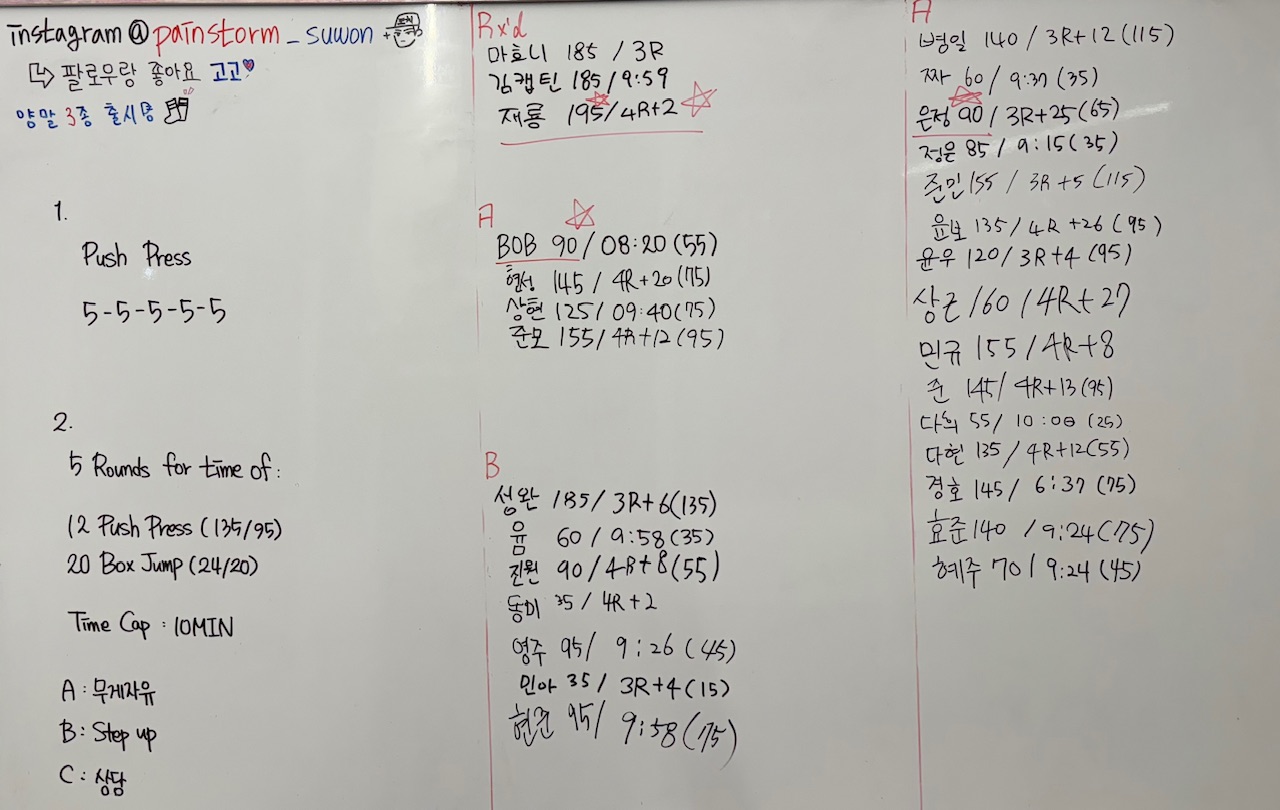 instagram@painstorm_suwon
팔로우랑 좋아요 고고
양말 3종 출시중
1.
Push Press
5-5-5-5-5
2.
5 Rounds for time of:
12 Push Press (135/95)
20 Box Jump (24/20)
Time Cap : 10MIN
A : 무게자유
B : Step up
C : 상담
Rx'd
마호니 185 / 3R
김캡틴 185/9:59
재룡 195/4R+2
A
BOB 90/08:20(55)
현성 145/ 4R+20(75)
상현 125/09:40(75)
준모 155/4R+12(95)
B
성완 185/3R+6(135)
윰 60/9:58(35)
진원 90/4R+8(55)
동미 35/4R+2
영주 95/ 9:26(45)
민아 35/ 3R+4(15)
현준 95/ 9:58(75)
A
병일 140/3R+12(115)
짜 60/9:37(35)
은정 90/3R+25(65)
정은 85/9:15(35)
준민 155/ 3R+5(115)
윤보 135/4R+26(95)
윤우 120/3R+4(95)
상근 160/4R+27
민규 155/4R+8
준 145/4R+13(95)
다희 55/10:00(25)
다현 135/4R+12(55)
경호 145/ 6:37(75)
효준 140 /9:24(75)
혜주 70/9:24(45)